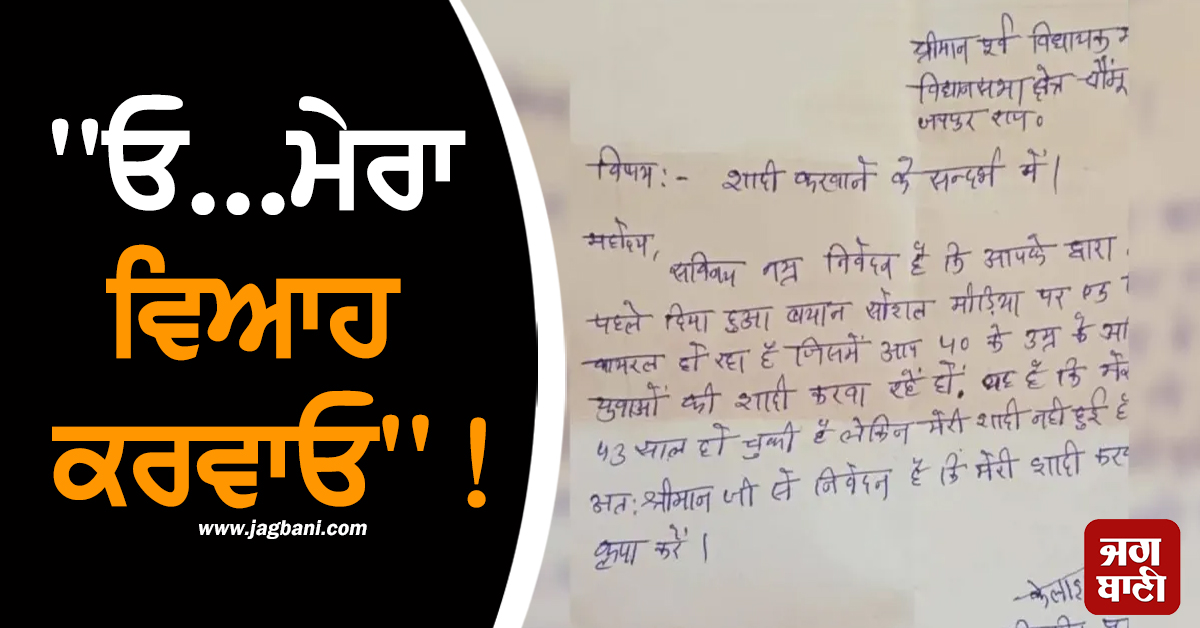 "ਓ...ਮੇਰਾ
ਵਿਆਹ
ਕਰਵਾਓ" !
www.jagbani.com
श्रीमान पूर्व विधायक
विधानसभा क्षेत्र चौमूं
जयपुर राज०
विषय:- शादी करवाने के सन्दर्भ में।
महोदय,
सविनय नम्र निवेदन है कि आपके द्वारा
पहले दिया हुआ बयान सोशल मीडिया पर
वायरल हो रहा है जिसमें आप 50 के उम्र के
युवाओं की शादी करवा रहें हों. यह है कि
43 साल हो चुकी है लेकिन मेरी शादी नही हुई है
अत: श्रीमान जी से निवेदन है कि मेरी शादी
कृपा करें।
ਜਗ
ਬਾਣੀ